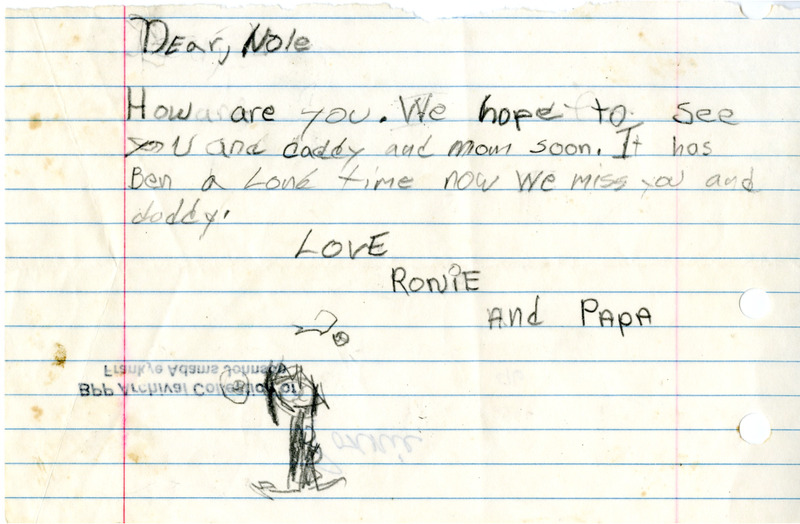 Dear, Nole
How are you. We hope to see
you and daddy and mom soon. It has
Ben a Long time now We miss you and
daddy.
LOVE
RONiE
and PAPA
Frankye Adams Johnson
BPP Archival Collection of